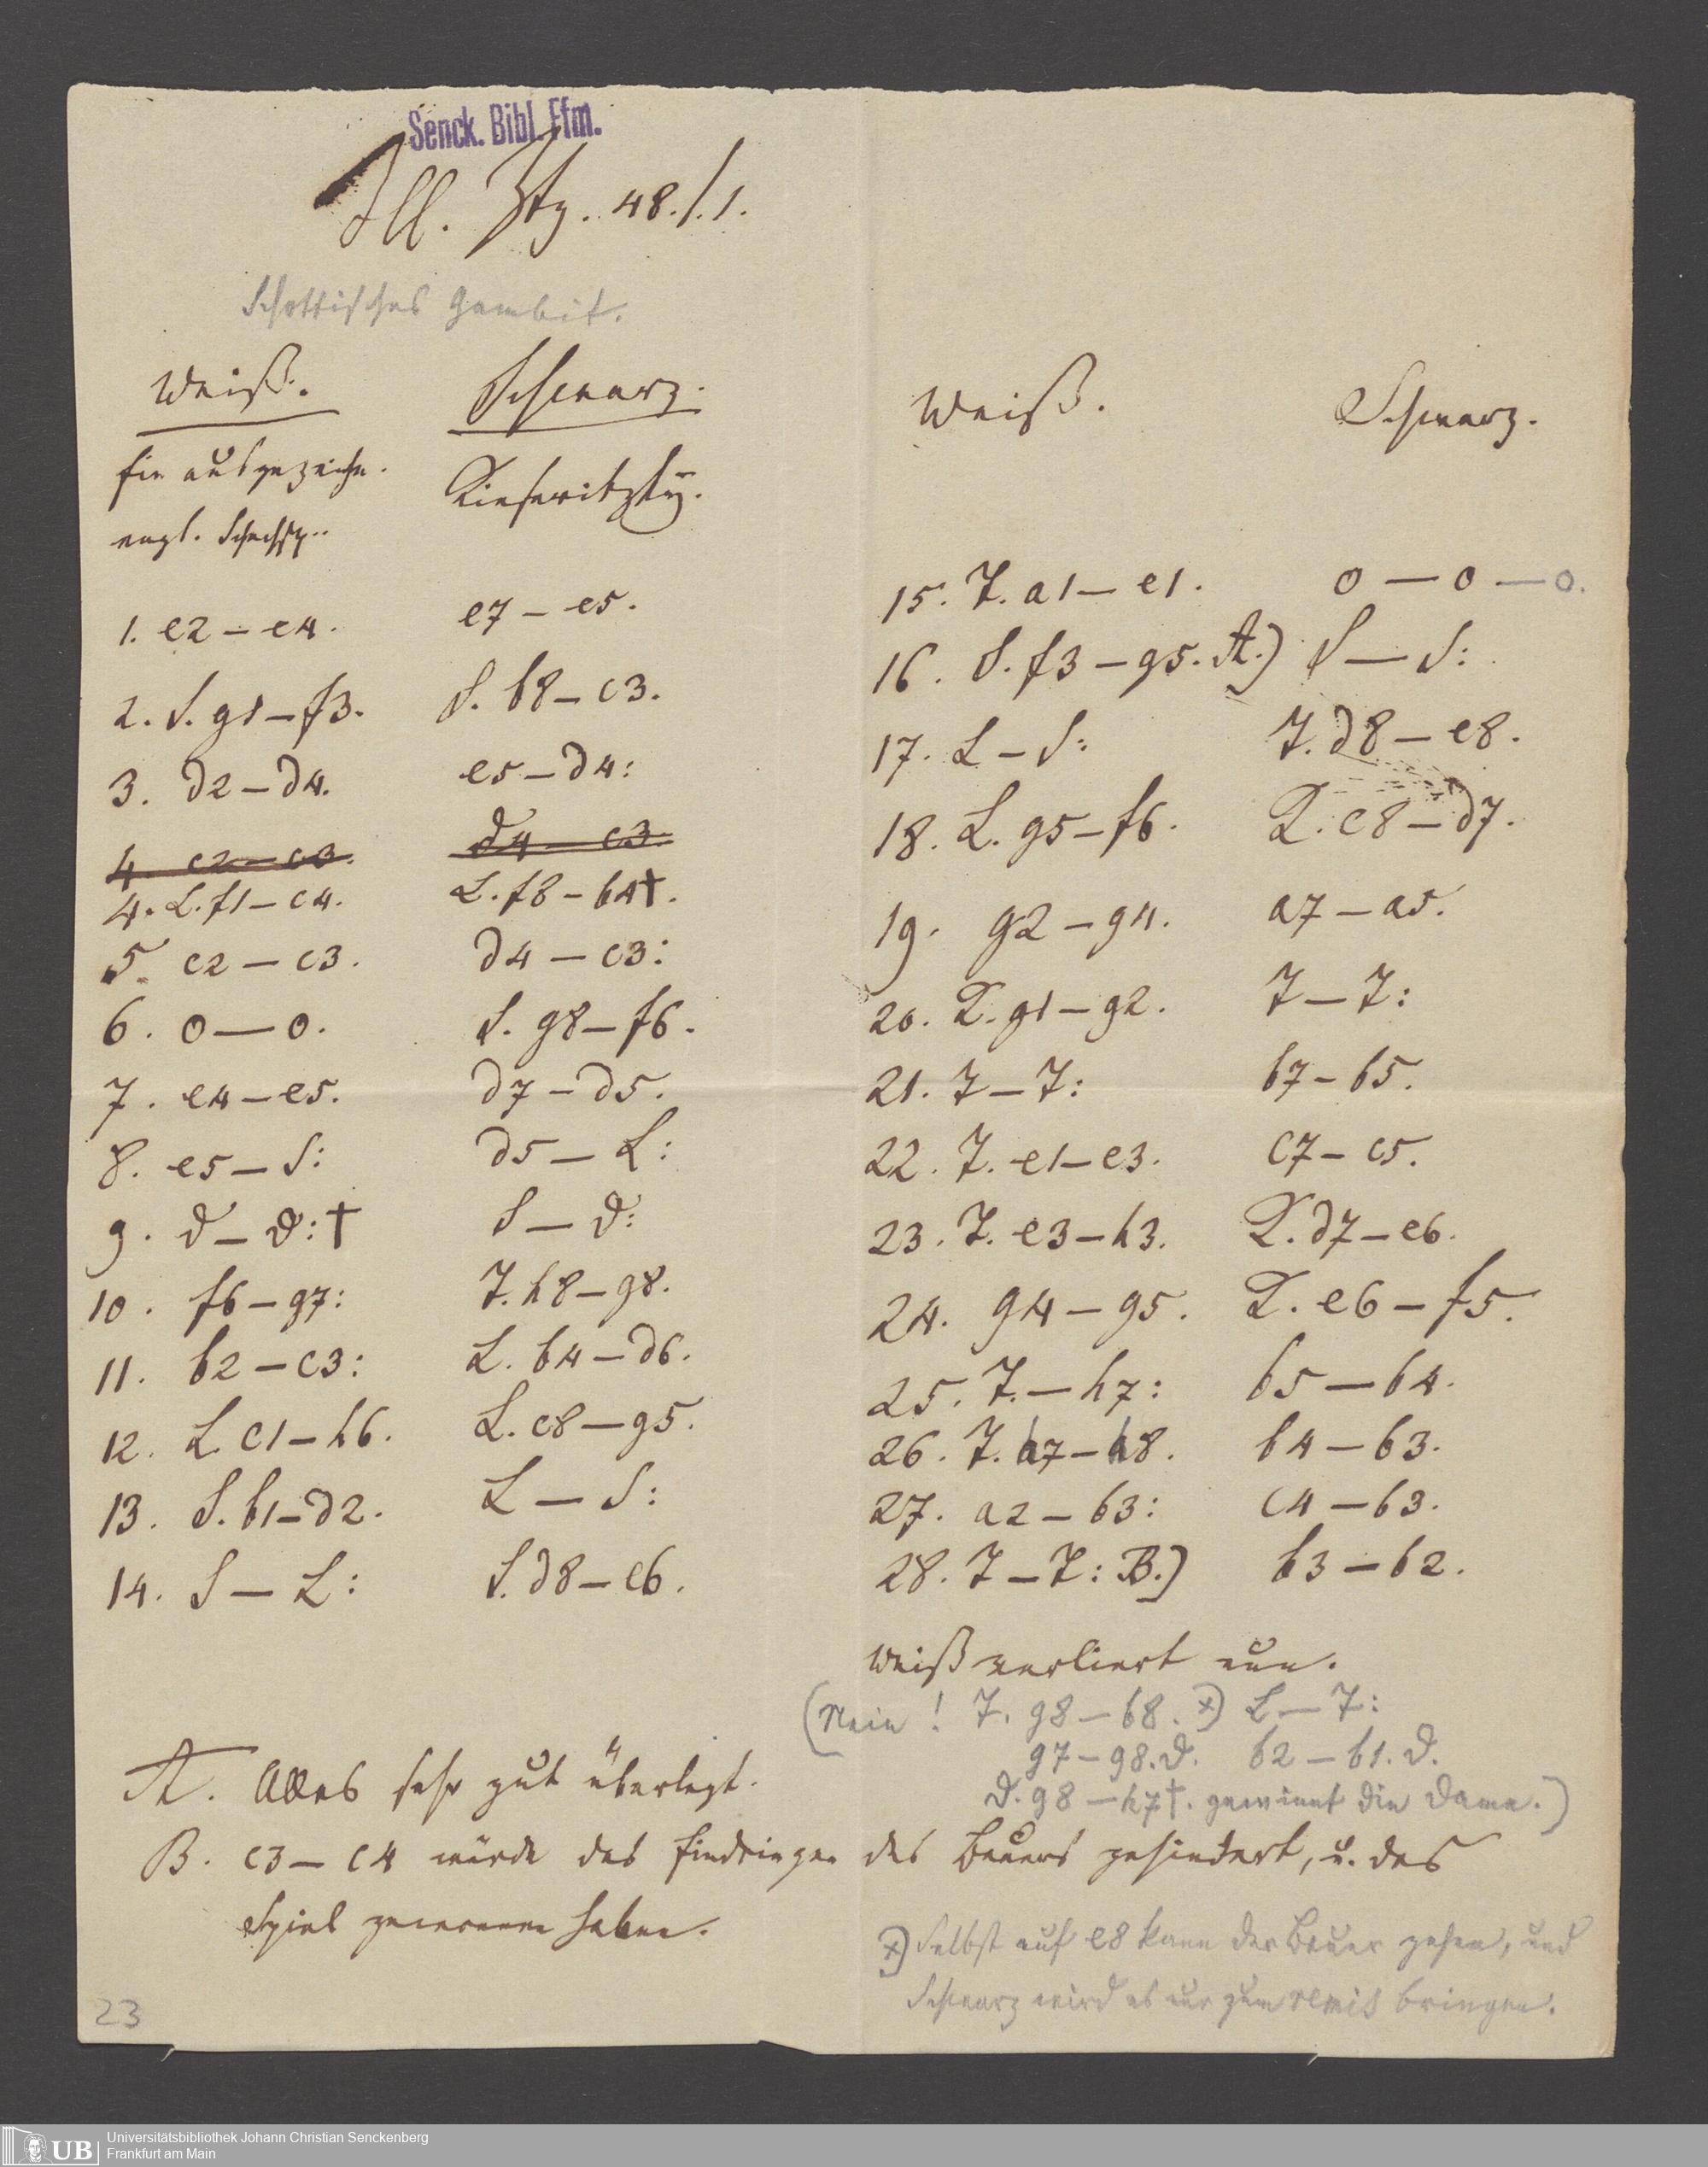 Senck. Bibl. Ffm.
Ill. Ztg. 48./.1.
Schottisches Gambit.
Weiß. Schwarz.
Ein ausgezeichn. Kieseritzky.
engl. Schachsp.
1. e2 – e4. e7 – e5.
2. S. g1 – f3. S. b8 – c3.
3. d2 – d4. e5 – d4:
4. c2 – c3. d4 – c3.
4. L. f1 – c4. L. f8 – b4†.
5. c2 – c3. d4 – c3:
6. 0 — 0. S. g8 – f6.
7. e4 – e5. d7 – d5.
8. e5 – S: d5 – L:
9. D – D:† S — D:
10. f6 – g7: T. h8 – g8.
11. b2 – c3: L. b4 – d6.
12. L. c1 – h6. L. c8 – g5.
13. S. b1 – d2. L — S:
14. S — L: S. d8 – e6.
Weiß. Schwarz.
15. T. a1 – e1. 0 — 0 — 0.
16. S. f3 – g5. A.) S — S:
17. L – S: T. d8 – e8.
18. L. g5 – f6. K. c8 – d7.
19. g2 – g4. a7 – a5.
20. K. g1 – g2. T – T:
21. T – T: b7 – b5.
22. T. e1 – e3. c7 – c5.
23. T. e3 – h3. K. d7 – e6.
24. g4 – g5. K. e6 – f5.
25. T. – h7: b5 – b4.
26. T. h7 – h8. b4 – b3.
27. a2 – b3: c4 – b3.
28. T – T: B.) b3 – b2.
Weiß verliert nun.
(Nein! T. g8 – b8. x) L – T:
g7 – g8. D. b2 – b1. D.
D. g8 – h7†. gewinnt die Dame.)
A. Alles sehr gut überlegt.
B. c3 – c4 würde das Eindringen des Bauers gehindert, u. das
Spiel gewonnen haben.
x) Selbst auf e8 kann der Bauer gehen, und
Schwarz wird es nur zum remis bringen.
23
UB Universitätsbibliothek Johann Christian Senckenberg
Frankfurt am Main